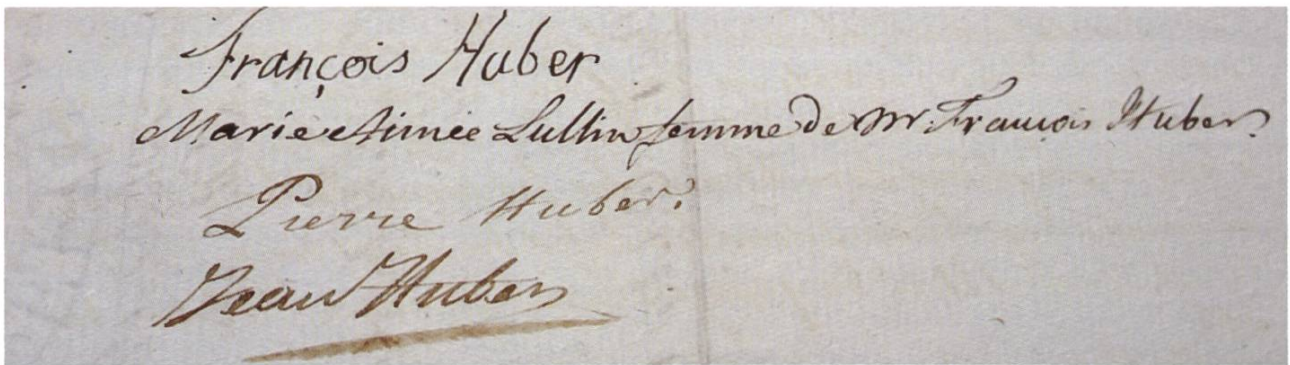 François Huber
Marie Aimée Lullin femme de Mr. François Huber.
Pierre Huber.
Jean Huber